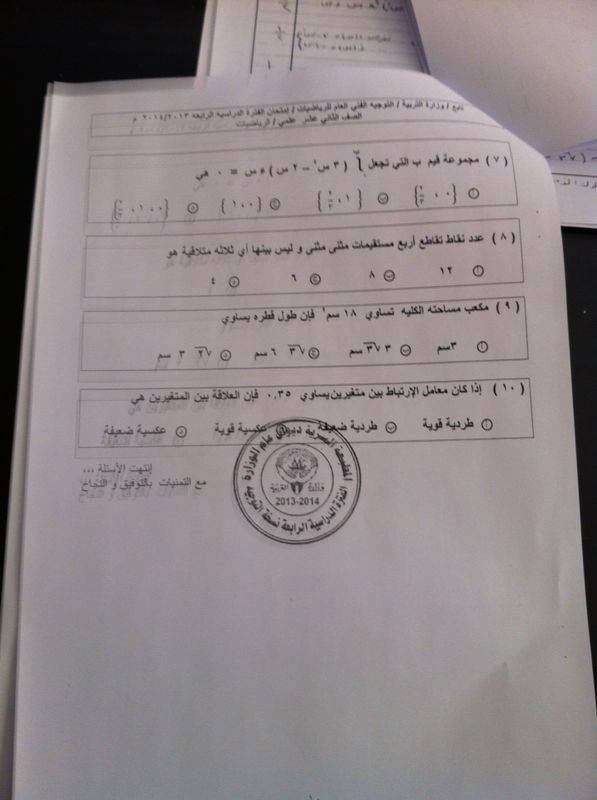 تابع / وزارة التربية / التوجيه الفني العام للرياضيات / إمتحان الفترة الدراسيه الرابعه ٢٠١٤/٢٠١٣ م
الصف الثاني عشر علمي / الرياضيات
( ٧ ) مجموعة قيم ب التي تجعل ∫ ( ٣ س٢ − ٢ س ) ء س = ٠ هي
أ { ٠ ، ٢/٣ } ب { ١ ، ٢/٣ } ج { ٠ ، ١ } د
( ٨ ) عدد نقاط تقاطع أربع مستقيمات مثنى مثنى و ليس بينها أي ثلاثه متلاقية هو
أ ١٢ ب ٨ ج ٦ د ٤
( ٩ ) مكعب مساحته الكليه تساوي ١٨ سم٢ فإن طول قطره يساوي
أ ٣سم ب ٣ √٣ سم ج √٣ ٦ سم د √٢ ٣ سم
( ١٠ ) إذا كان معامل الإرتباط بين متغيرين يساوي ٠,٣٥ فإن العلاقة بين المتغيرين هي
أ طردية قوية ب طردية ضعيفة عكسية قوية د عكسية ضعيفة
إنتهت الأسئلة ,,,
مع التمنيات بالتوفيق و النجاح
المطبعة السرية ديوان عام الوزارة
وزارة التربية
2013-2014
الفترة الدراسية الرابعة نسخة التوجيه